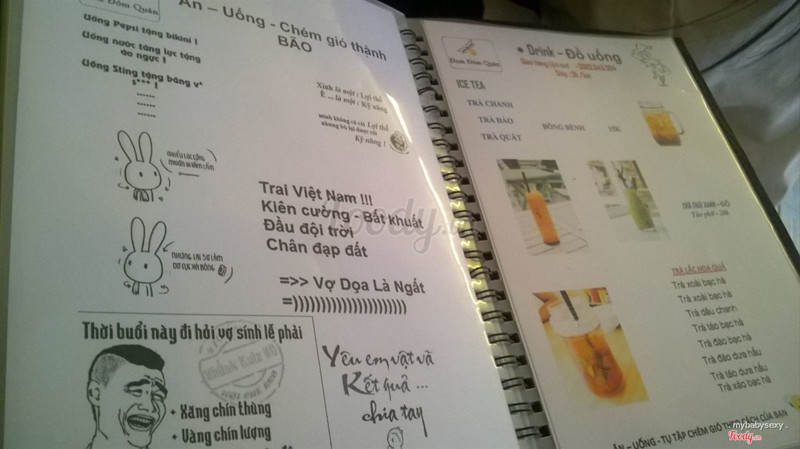 Đom Đóm Quán
Ăn – Uống - Chém gió thành
BÃO
Uống Pepsi tặng bikini !
Uống nước tăng lực tặng
áo ngực !
Uống Sting tặng băng v*
s*** !
Xinh là một : Lợi thế
Ế ... là một : Kỹ năng
mình không có cái Lợi thế
nhưng bù lại được cái
Kỹ năng !
Trai Việt Nam !!!
Kiên cường - Bất khuất
Đầu đội trời
Chân đạp đất
=>> Vợ Dọa Là Ngất
=))))))))))))))))))))))
Thời buổi này đi hỏi vợ sính lễ phải
• Xăng chín thùng
• Vàng chín lượng
Yêu em vật vã
Kết quả ...
chia tay
Đom Đóm Quán
Drink – Đồ uống
ICE TEA
TRÀ CHANH
TRÀ ĐÀO
TRÀ QUẤT
BỒNG BỀNH
15K
TRÀ THÁI XANH - ĐỎ
TRÀ LẮC HOA QUẢ
Trà xoài bạc hà
Trà xoài bạc hà
Trà dâu chanh
Trà táo bạc hà
Trà đào bạc hà
Trà đào dưa hấu
Trà táo dưa hấu
Trà xảo bạc hà
ĂN – UỐNG - TỤ TẬP CHÉM GIÓ THEO CÁCH CỦA BẠN
Foody.vn
mybabysexy .
Foody.vn